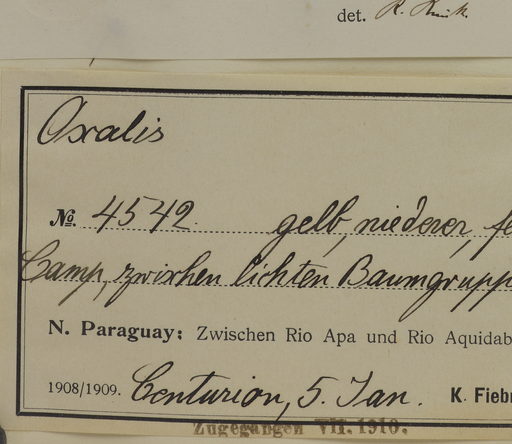 det. R. Knuth.
Oxalis
No. 4542. gelb, niederer, fe
Camp, zwischen lichten Baumgrupp
N. Paraguay: Zwischen Rio Apa und Rio Aquidab
1908/1909. Centurion, 5. Jan. K. Fiebr
Zugegangen VII. 1910.